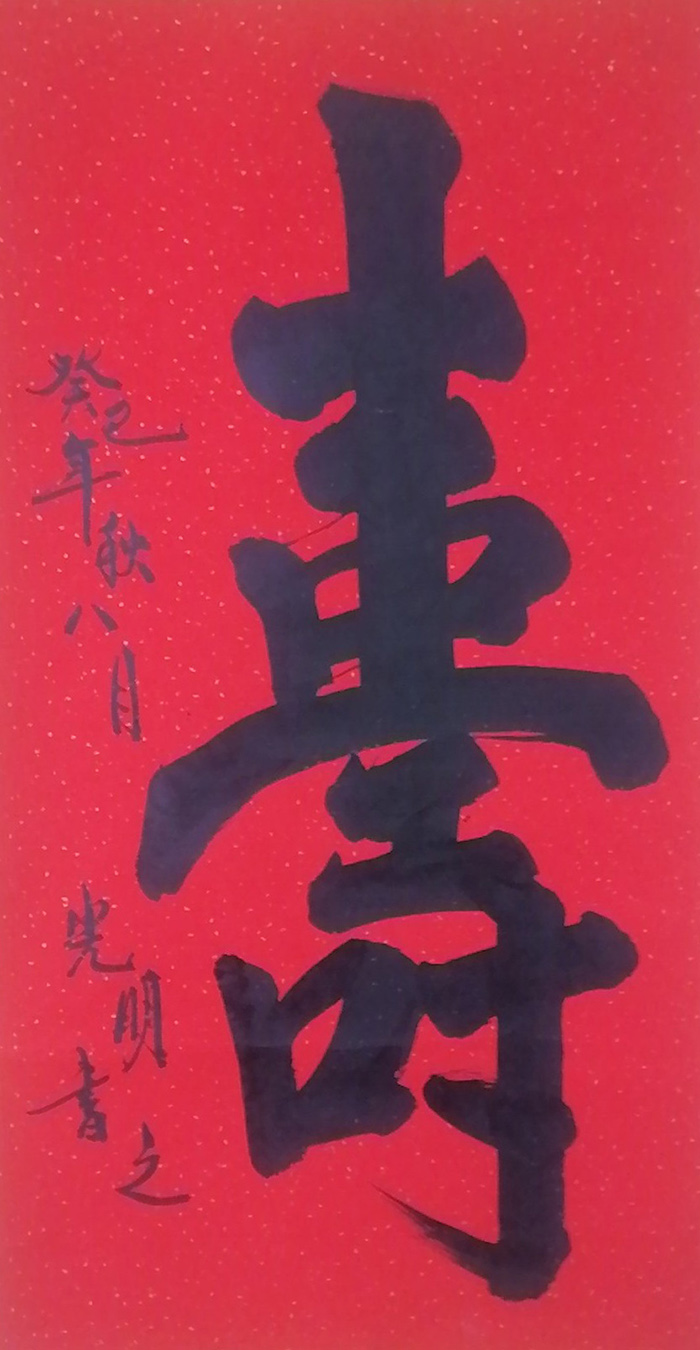 壽
癸巳年秋八月
光明書之